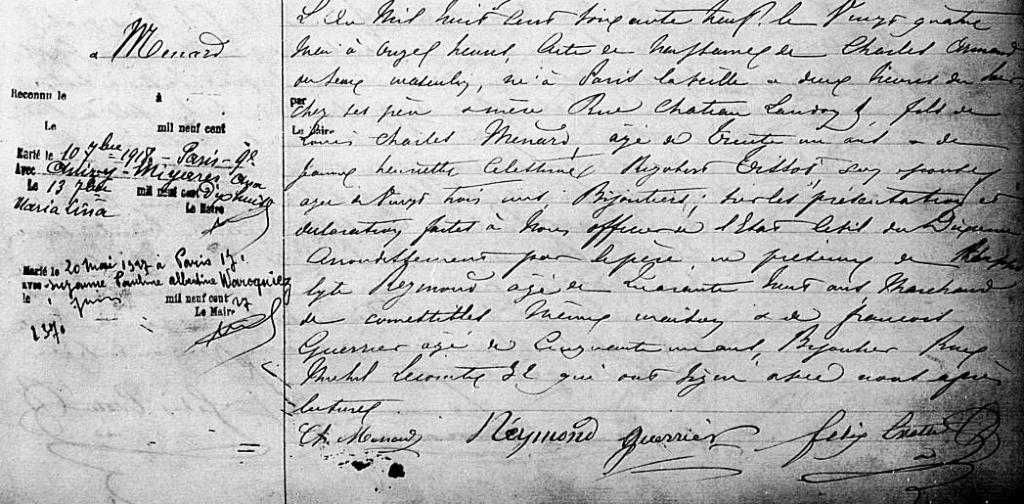 a Menard
Reconnu le à
par
Le mil neuf cent
Le Maire
Marié le 10 7bre 1918 - Paris - 9e
Avec
Le 13 7bre mil neuf cent Dix huit
Maria Lina Le Maire
Marié le 20 Mai 1927 à Paris 17e
avec Suzanne Pauline Albertine Waroquiez
le 1 Juin mil neuf cent 27
Le Maire
L'an Mil huit cent soixante neuf, le Vingt quatre
Mai à onze heures, Acte de Naissance de Charles Armand
du sexe masculin, né à Paris la veille a deux heures du soir
chez ses père & mère Rue Chateau Landon, fils de
Louis Charles Menard, âgé de trente un ans & de
Jeanne henriette Celestine son épouse
agée de Vingt trois ans, Bijoutiers; sur les présentation et
déclaration faites à Nous officier de l'Etat Civil du Dixieme
Arrondissement par le père, en présence de
lyte Reymond âgé de quarante huit ans Marchand
de comestibles même maison & de françois
Guerrier agé de Cinquante un ans, Bijoutier Rue
Michel Lecomte 32 qui ont signé avec nous après
lecture
Ch. Menard Reymond Guerrier felix